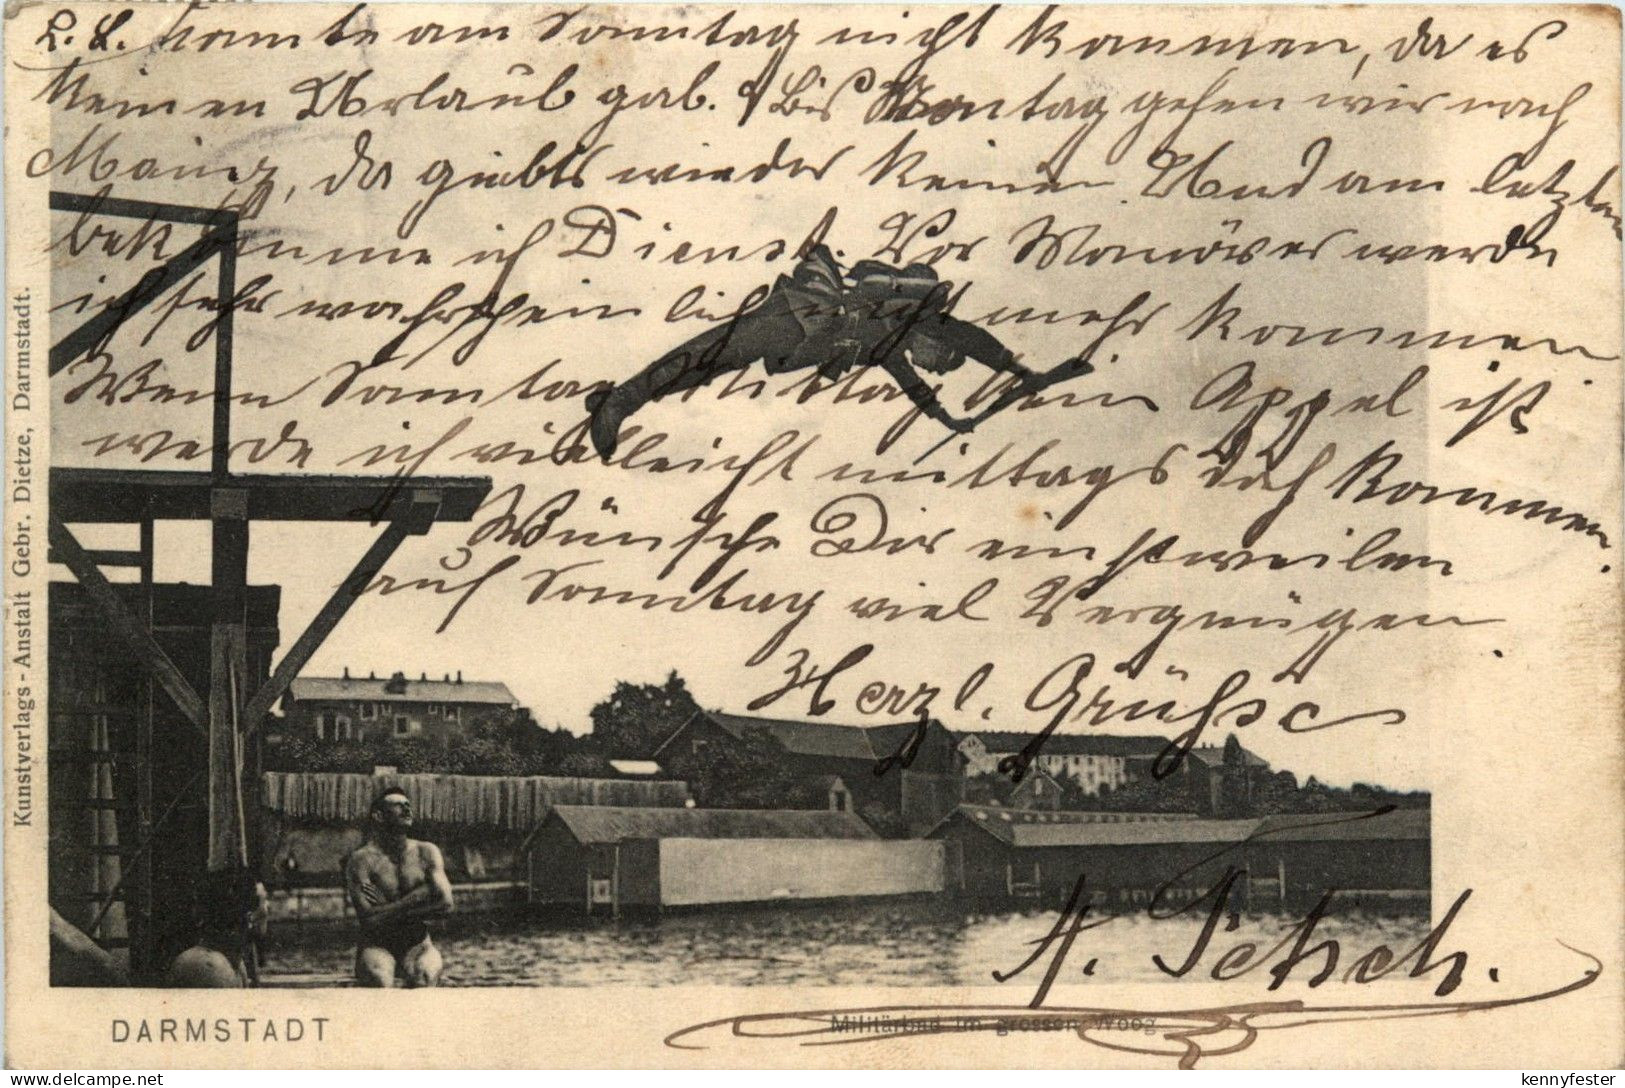 L. L. Konnte am Sonntag nicht kommen, da es
keinen Urlaub gab. Bis Montag gehen wir nach
Mainz, da giebts wieder keinen. Und am letzten
bekomme ich Dienst. Vor Manöver werde
ich sehr wahrscheinlich nicht mehr kommen
Wenn Sonntag Mittag kein Appel ist
werde ich vielleicht mittags doch kommen.
Wünsche Dir einstweilen
auf Sonntag viel Vergnügen.
Herzl. Grüße
A.
Kunstverlags-Anstalt Gebr. Dietze, Darmstadt.
DARMSTADT
Militärbad im grossen Woog
delcampe.net
kennyfester